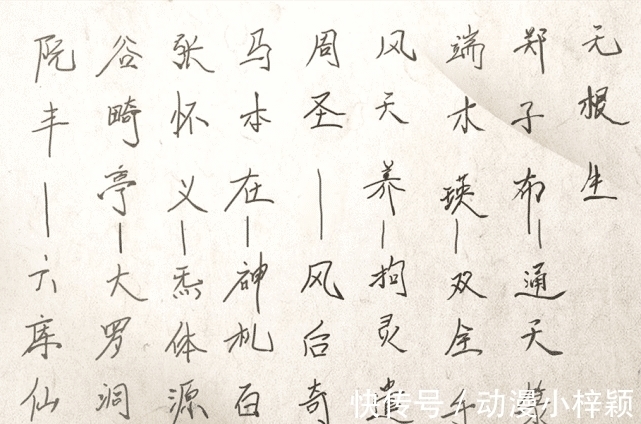 无根生
郑子布—通天箓
端木瑛—双全手
风天养—拘灵遣
周圣—风后奇
马本在—神机百
张怀义—炁体源
谷畸亭—大罗洞
阮丰—六库仙
快传号/动漫小梓颖